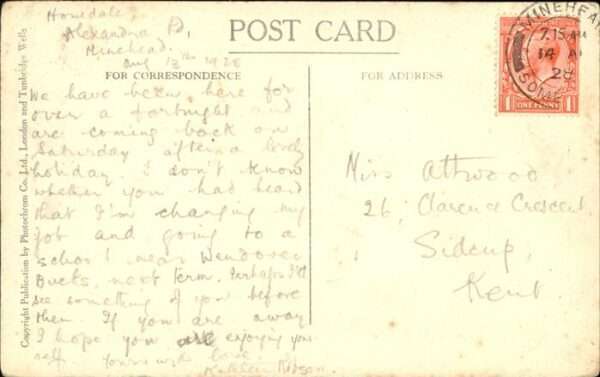 Homedale,
Alexandra Rd,
Minehead.
Aug 13th 1928
POST CARD
FOR CORRESPONDENCE
FOR ADDRESS
We have been here for
over a fortnight and
are coming back on
Saturday after a lovely
holiday. I don't know
whether you had heard
that I'm changing my
job and going to a
school near Wendover
Bucks, next term. Perhaps I'll
see something of you before
then. If you are away
I hope you are enjoying your
self. Yours with love,
Kathleen
Miss Attwood
26, Clarence Crescent,
Sidcup,
Kent.
MINEHEAD
7.15 AM
14 AU
28
SOMERSET
1 ONE PENNY 1
Copyright Publication by Photochrom Co., Ltd., London and Tunbridge Wells